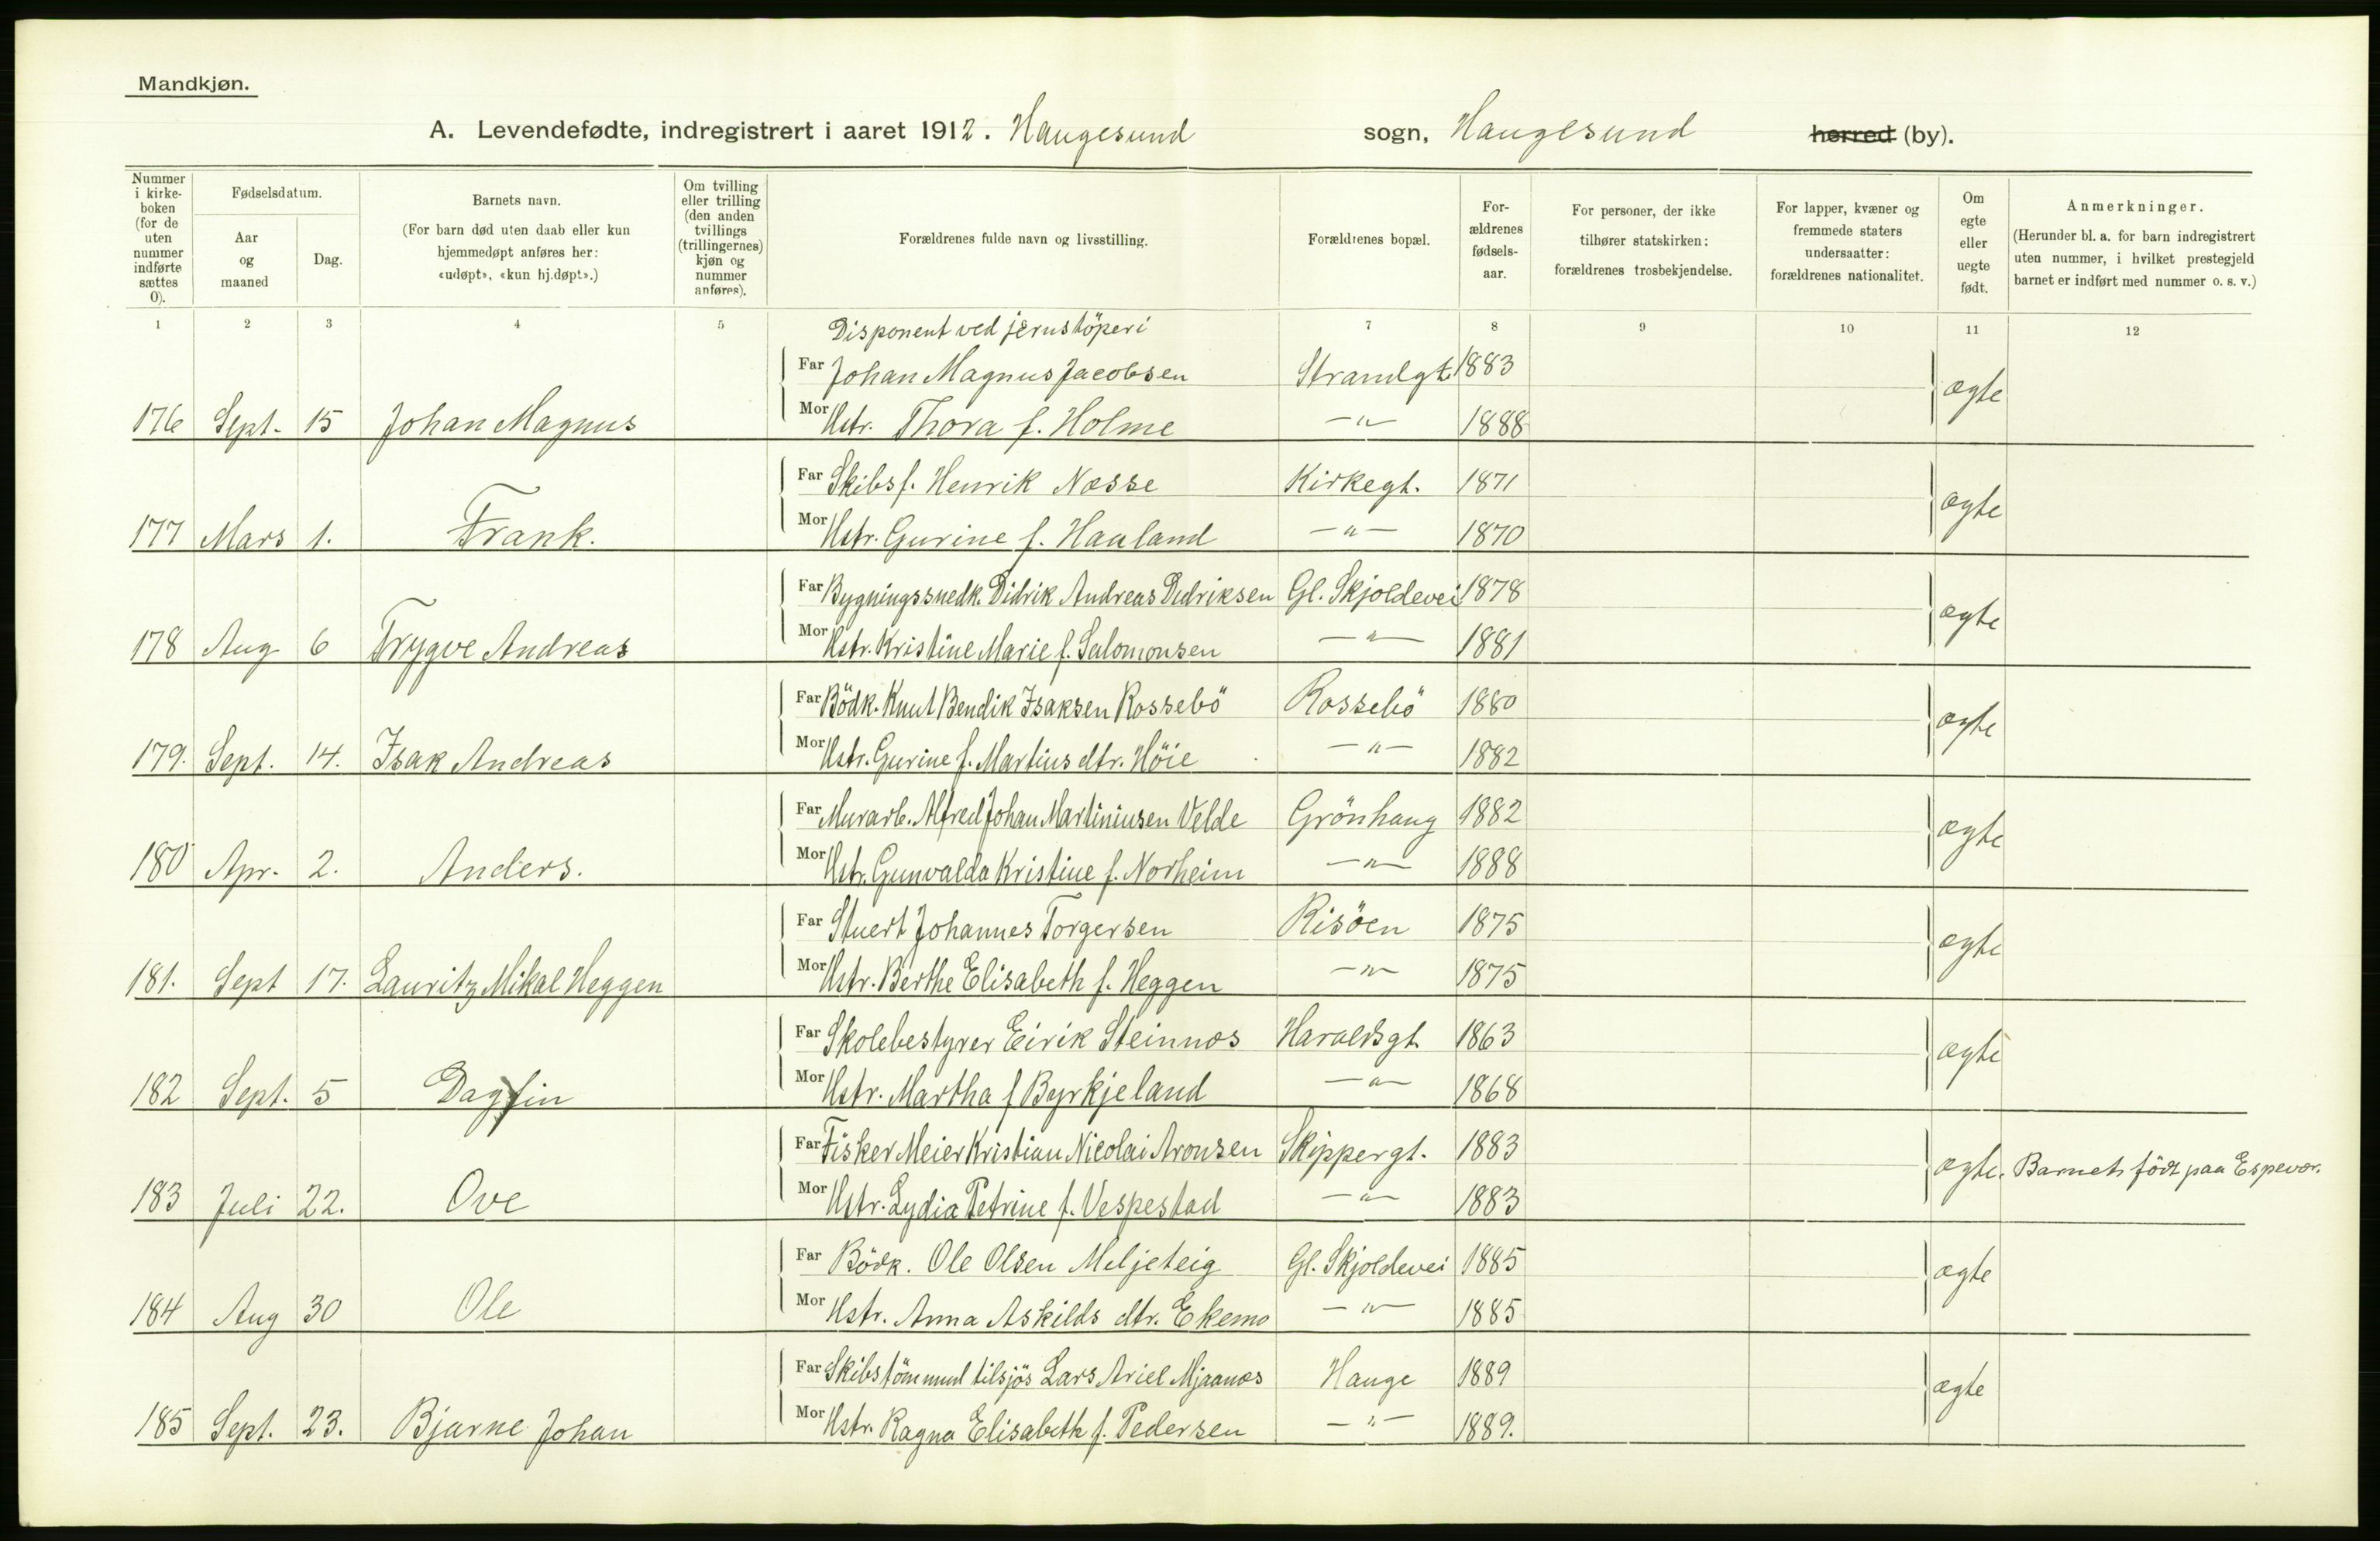 Mandkjøn.
A. Levendefødte, indregistrert i aaret 1912. Haugesund sogn, Haugesund herred (by).
Nummer i kirke-boken (for de uten nummer indførte sættes 0).
Fødselsdatum.
Aar og maaned
Dag.
Barnets navn.
(For barn død uten daab eller kun hjemmedøpt anføres her: «udøpt», «kun hj.døpt».)
Om tvilling eller trilling (den anden tvillings (trillingernes) kjøn og nummer anføres).
Forældrenes fulde navn og livsstilling.
Forældrenes bopæl.
For-ældrenes fødsels-aar.
For personer, der ikke tilhører statskirken: forældrenes trosbekjendelse.
For lapper, kvæner og fremmede staters undersaatter: forældrenes nationalitet.
Om egte eller uegte født.
Anmerkninger.
(Herunder bl. a. for barn indregistrert uten nummer, i hvilket prestegjeld barnet er indført med nummer o. s. v.)
1 2 3 4 5 7 8 9 10 11 12
Disponent ved jernstöperi
Far Johan Magnus Jacobsen Strandgt. 1883
176 Sept. 15 Johan Magnus Mor Hstr. Thora f. Holme -"- 1888 ægte
Far Skibsf. Henrik Næsse Kirkegt. 1871
177 Mars 1. Frank. Mor Hstr. Gurine f. Haaland -"- 1870 ægte
Far Bygningssnedk. Didrik Andreas Didriksen Gl. Skjoldevei 1878
178 Aug 6 Trygve Andreas Mor Hstr. Kristine Marie f. Salomonsen -"- 1881 ægte
Far Bödk. Knut Bendik Isaksen Rossebö Rossebö 1880
179. Sept. 14. Isak Andreas Mor Hstr. Gurine f. Martius dtr. Höie -"- 1882 ægte
Far Murarb. Alfred Johan Martiniusen Velde Grönhaug 1882
180 Apr. 2. Anders. Mor Hstr. Gunvalda Kristine f. Norheim -"- 1888 ægte
Far Stuert Johannes Torgersen Risöen 1875
181. Sept 17. Lauritz Mikal Heggen Mor Hstr. Berthe Elisabeth f. Heggen -"- 1875 ægte
Far Skolebestyrer Eirik Steinnæs Haraldsgt. 1863
182 Sept. 5 Dagfin Mor Hstr. Martha f Byrkjeland -"- 1868 ægte
Far Fisker Meier Kristian Nicolai Aronsen Skippergt. 1883
183 Juli 22. Ove Mor Hstr. Lydia Petrine f. Vespestad -"- 1883 ægte. Barnet födt paa Espevær.
Far Bödk. Ole Olsen Meljeteig Gl. Skjoldevei 1885
184 Aug 30 Ole Mor Hstr. Anna Askilds dtr. Ekemo -"- 1885 ægte
Far Skibstömmml tilsjös Lars Ariel Mjaanæs Hauge 1889
185 Sept. 23. Bjarne Johan Mor Hstr. Ragna Elisabeth f. Pedersen -"- 1889. ægte